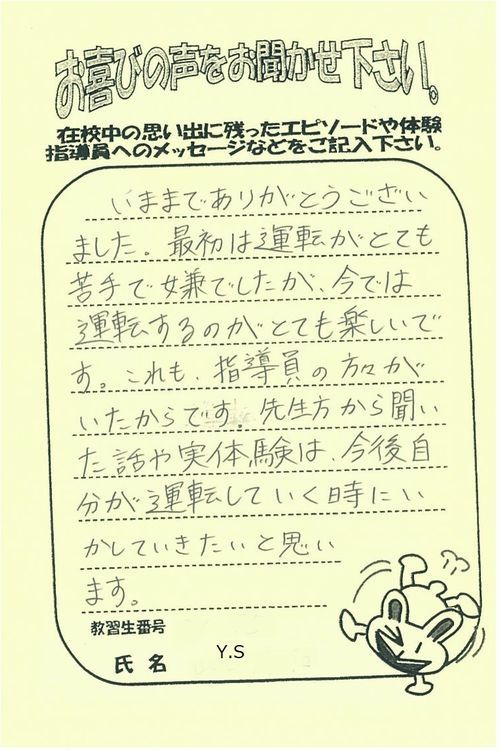 お喜びの声をお聞かせ下さい。
在校中の思い出に残ったエピソードや体験
指導員へのメッセージなどをご記入下さい。
いままでありがとうござい
ました。最初は運転がとても
苦手で嫌でしたが、今では
運転するのがとても楽しいで
す。これも、指導員の方々が
いたからです。先生方から聞い
た話や実体験は、今後自
分が運転していく時にい
かしていきたいと思い
ます。
教習生番号
氏名 Y.S